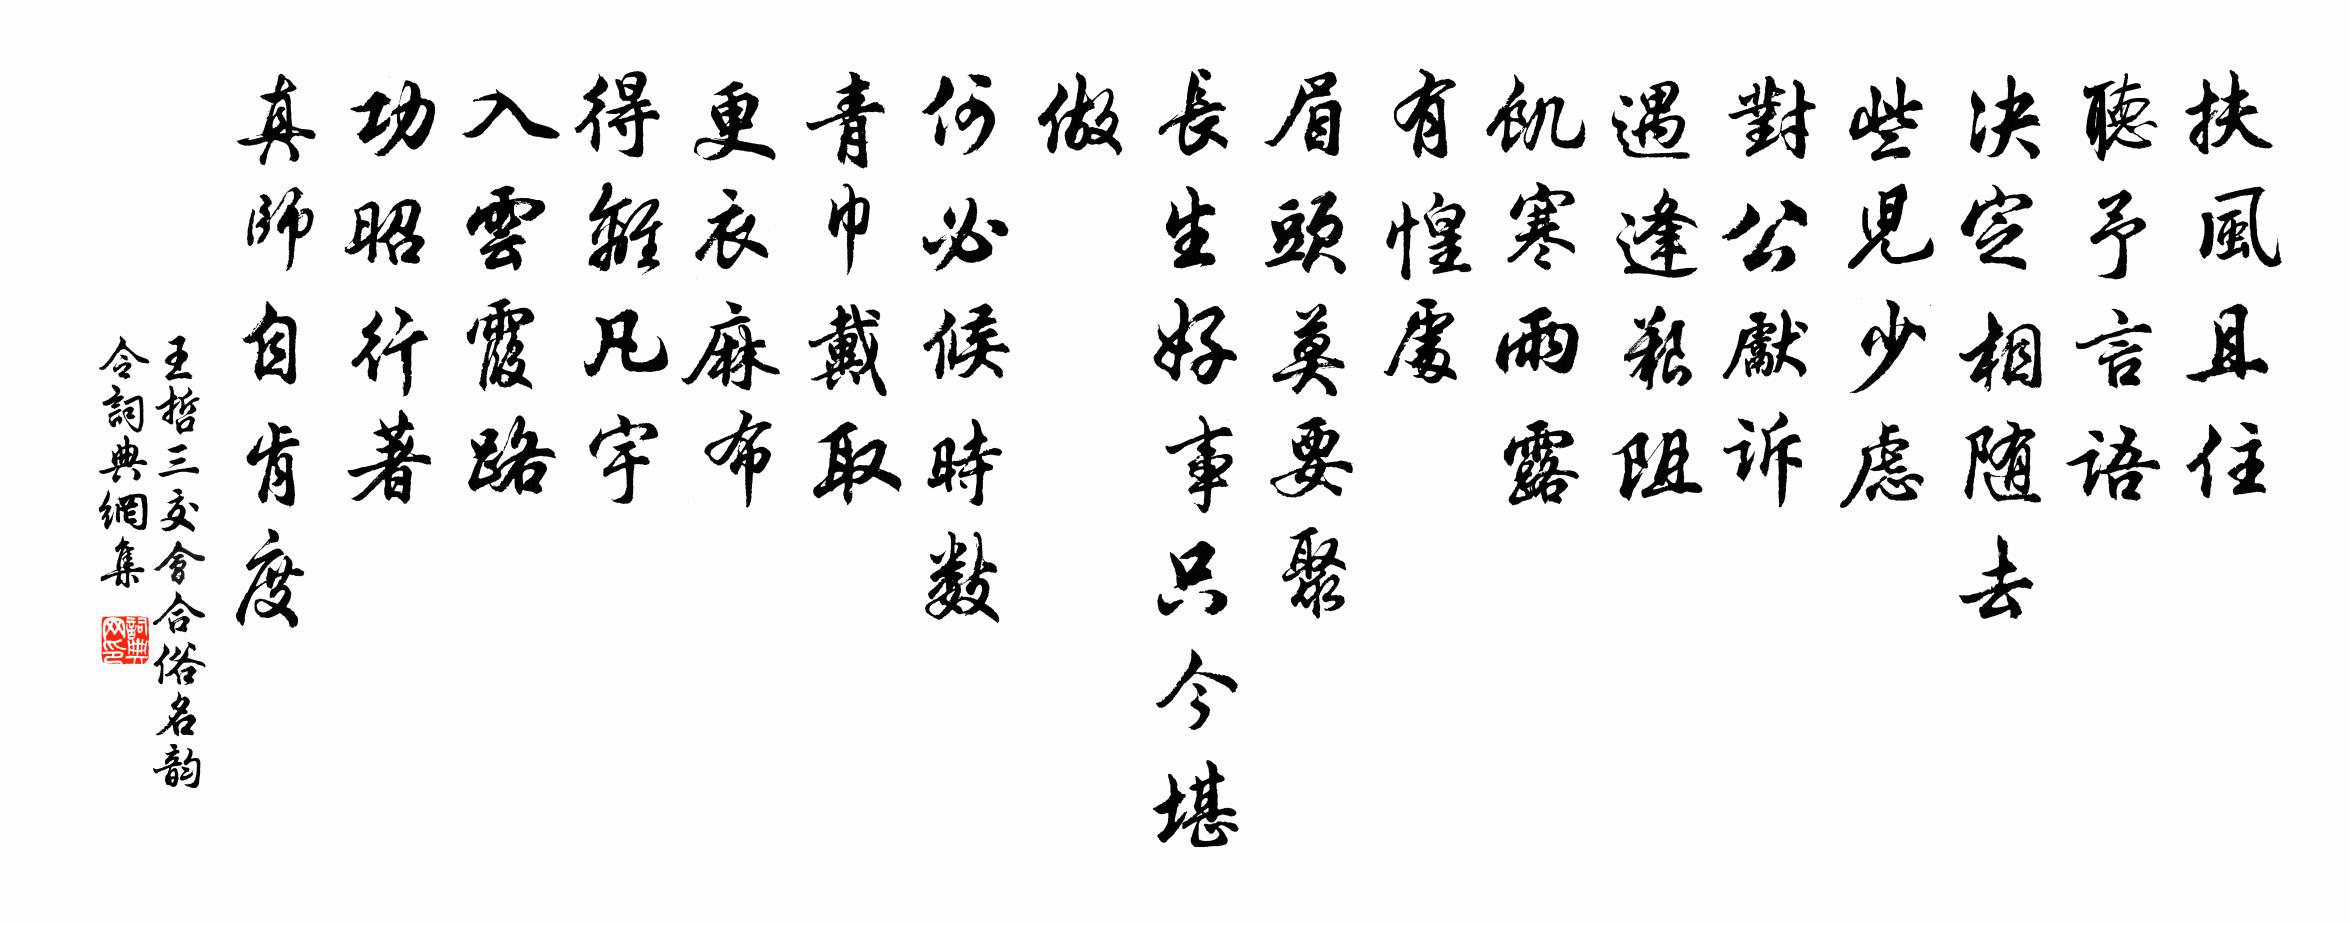 扶風且住
聽予言語
決定相随去
些兒少慮
對公獻訴
遇逢艱阻
飢寒雨露
有惶處
眉頭莫要聚
長生好事只今堪
做
何必候時數
青巾戴取
更衣麻布
得離凡宇
入雲霞路
功昭行著
真師自肯度
王哲三交會合俗名韵
令詞典網集
詞典
网印